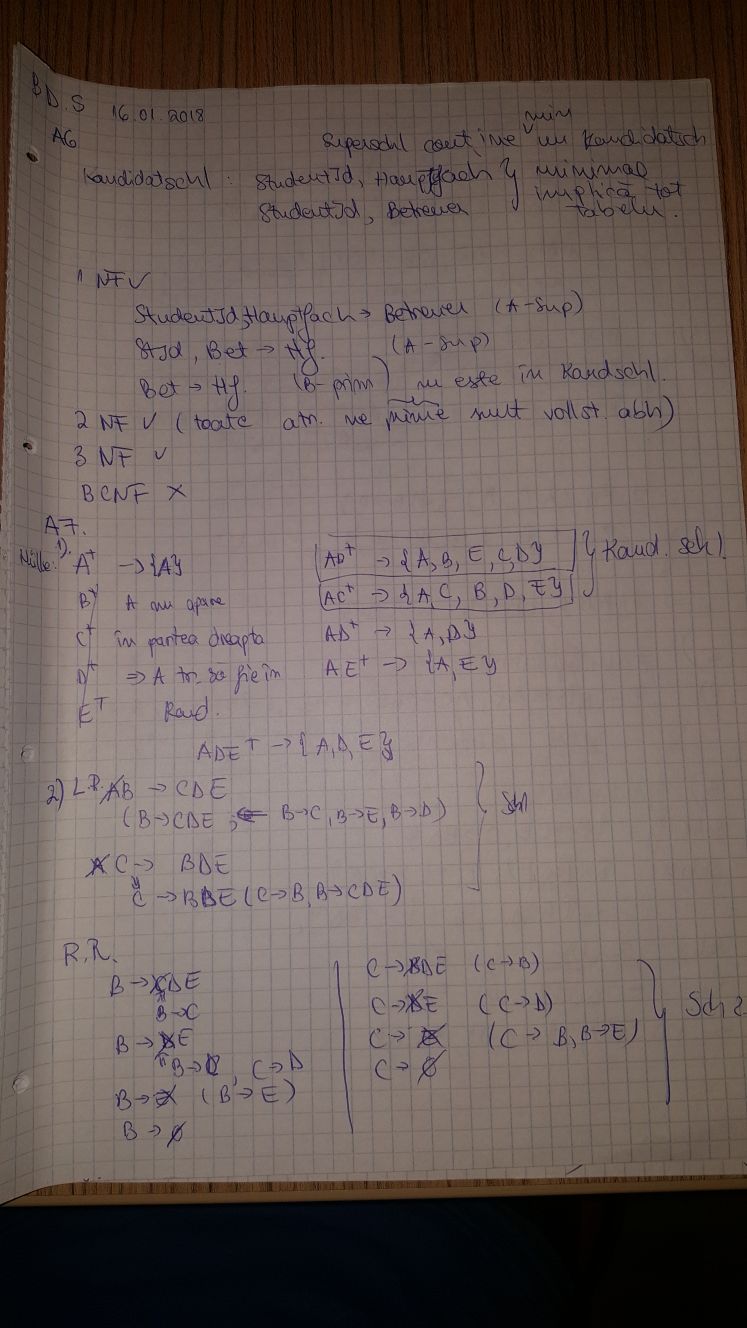 BD.S 16.01.2018
A6
Superschl conține min un Kandidatsch
Kandidatschl : StudentId, Hauptfach } minimal
StudentId, Betreuer implică tot
tabelu.
1 NF ✓
StudentId, Hauptfach → Betreuer (A-Sup)
StId, Bet → Hf. (A-Sup)
Bet → Hf. (B-prim) nu este în Kandschl.
2 NF ✓ (toate atr. ne prime sunt vollst. abh)
3 NF ✓
BCNF ×
A7.
1)
Hülle: A⁺ → {A}
B⁺ A nu apare
C⁺ în partea dreapta
D⁺ ⇒ A tr. să fie în
E⁺ Kand.
AB⁺ → {A, B, E, C, D} } Kand. schl
AC⁺ → {A, C, B, D, E}
AD⁺ → {A, D}
AE⁺ → {A, E}
ADE⁺ → {A, D, E}
2) L.R. AB → CDE
(B → CDE ; ⇐ B→C, B→E, B→D)
AC → BDE
C → BDE (C→B, B→CDE)
R.R.
B → CDE
B→C
B → DE
B→C, C→D
B → E (B→E)
B → ∅
C → BDE (C→B)
C → DE (C→D)
C → E (C→B, B→E)
C → ∅
Sch 2